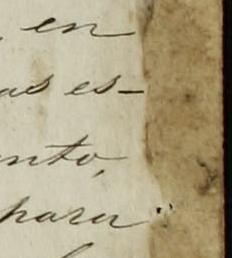 , en
as es-
ento,
para